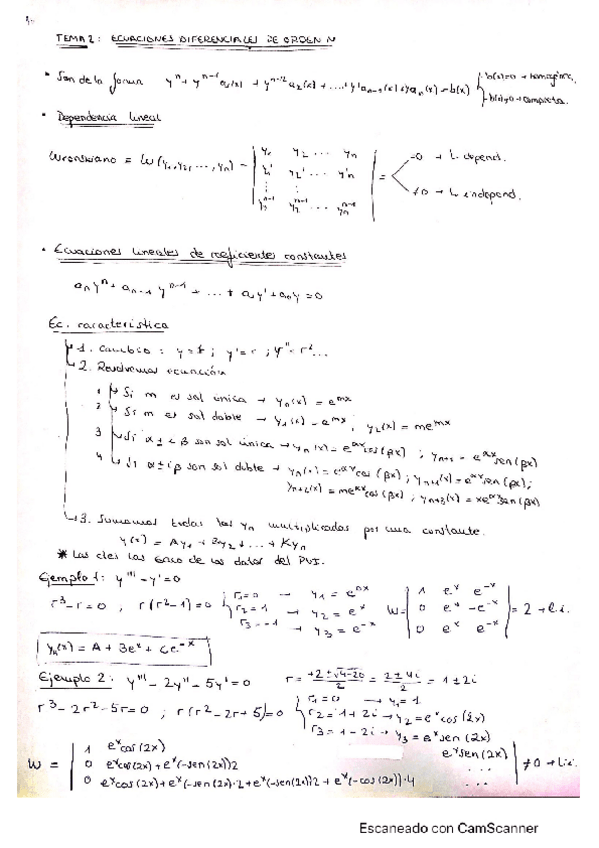 TEMA 2: ECUACIONES DIFERENCIALES DE ORDEN N
• Son de la forma yⁿ + yⁿ⁻¹a₁(x) + yⁿ⁻²a₂(x) + ....+ y'aₙ₋₁(x) + yaₙ(x) = b(x) { b(x)=0 → homogénea.
b(x)≠0 → completa.
• Dependencia lineal
Wronskiano = W(y₁, y₂, ..., yₙ) = | y₁ y₂ ... yₙ | = < =0 → L. depend.
y₁' y₂' ... y'ₙ
⋮ ⋮
y₁ⁿ⁻¹ y₂ⁿ⁻¹ ... yₙⁿ⁻¹ ≠0 → L. independ.
• Ecuaciones lineales de coeficientes constantes
aₙyⁿ + aₙ₋₁yⁿ⁻¹ + ... + a₁y' + a₀y = 0
Ec. característica
1. Cambio: y = 1; y' = r; y'' = r² ...
2. Resolvemos ecuación
1 Si m es sol única → yₙ(x) = eᵐˣ
2 Si m es sol doble → y₁(x) = eᵐˣ; y₂(x) = meᵐˣ
3 Si α ± iβ son sol única → yₙ(x) = e^αx cos(βx); yₙ₊₁ = e^αx sen(βx)
4 Si α ± iβ son sol doble → yₙ(x) = e^αx cos(βx); yₙ₊₁(x) = e^αx sen(βx);
yₙ₊₂(x) = me^αx cos(βx); yₙ₊₃(x) = xe^αx sen(βx)
3. Sumamos todas las yₙ multiplicadas por una constante.
y(x) = Ay₁ + By₂ + ... + Kyₙ
* Las ctes las saco de los datos del PVI.
Ejemplo 1: y''' - y' = 0
r³ - r = 0 ; r(r² - 1) = 0 { r₁ = 0 → y₁ = e⁰ˣ
r₂ = 1 → y₂ = eˣ
r₃ = -1 → y₃ = e⁻ˣ
W = | 1 eˣ e⁻ˣ
0 eˣ -e⁻ˣ
0 eˣ e⁻ˣ | = 2 → l.i.
yₙ(x) = A + Beˣ + Ce⁻ˣ
Ejemplo 2: y''' - 2y'' - 5y' = 0 r = +2 ± √4-20 / 2 = 2 ± 4i / 2 = 1 ± 2i
r³ - 2r² - 5r = 0 ; r(r² - 2r + 5) = 0 { r₁ = 0 → y₁ = 1
r₂ = 1 + 2i → y₂ = eˣ cos(2x)
r₃ = 1 - 2i → y₃ = eˣ sen(2x)
W = | 1 eˣcos(2x) eˣsen(2x)
0 eˣcos(2x) + eˣ(-sen(2x))2 ...
0 eˣcos(2x) + eˣ(-sen(2x)·2 + eˣ(-sen(2x))2 + eˣ(-cos(2x))·4 ... | ≠ 0 → l.i.
Escaneado con CamScanner